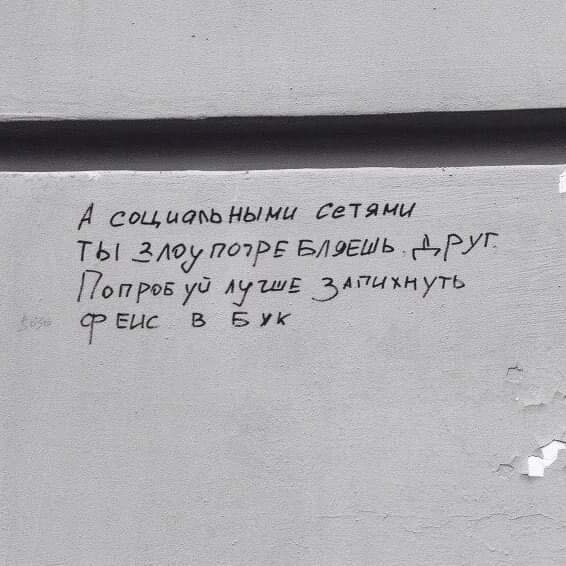 А социальными сетями
ты злоупотребляешь. Друг.
Попробуй лучше запихнуть
фейс в бук